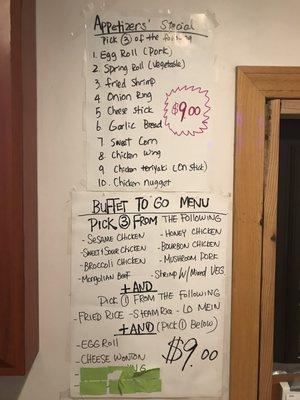 Appetizers' Special
Pick ③ of the
1. Egg Roll (Pork)
2. Spring Roll (Vegetable)
3. fried Shrimp
4 Onion Ring
5 Cheese Stick
$9.00
6 Garlic Bread
7 Sweet Corn
8 Chicken Wing
9 Chicken teriyaki (On Stick)
10. Chicken nugget
BUFFET TO GO MENU
PICK ③ FROM THE FOLLOWING
- SESAME CHICKEN - HONEY CHICKEN
- SWEET & SOUR CHICKEN - BOURBON CHICKEN
- BROCCOLI CHICKEN - MUSHROOM PORK
- MONGOLIAN BEEF - Shrimp W/Mixed VEG.
+ AND
PICK ① FROM THE FOLLOWING
- FRIED RICE - STEAM RICE - LO MEIN
+ AND (PICK ① Below)
- EGG ROLL
- CHEESE WONTON
$9.00